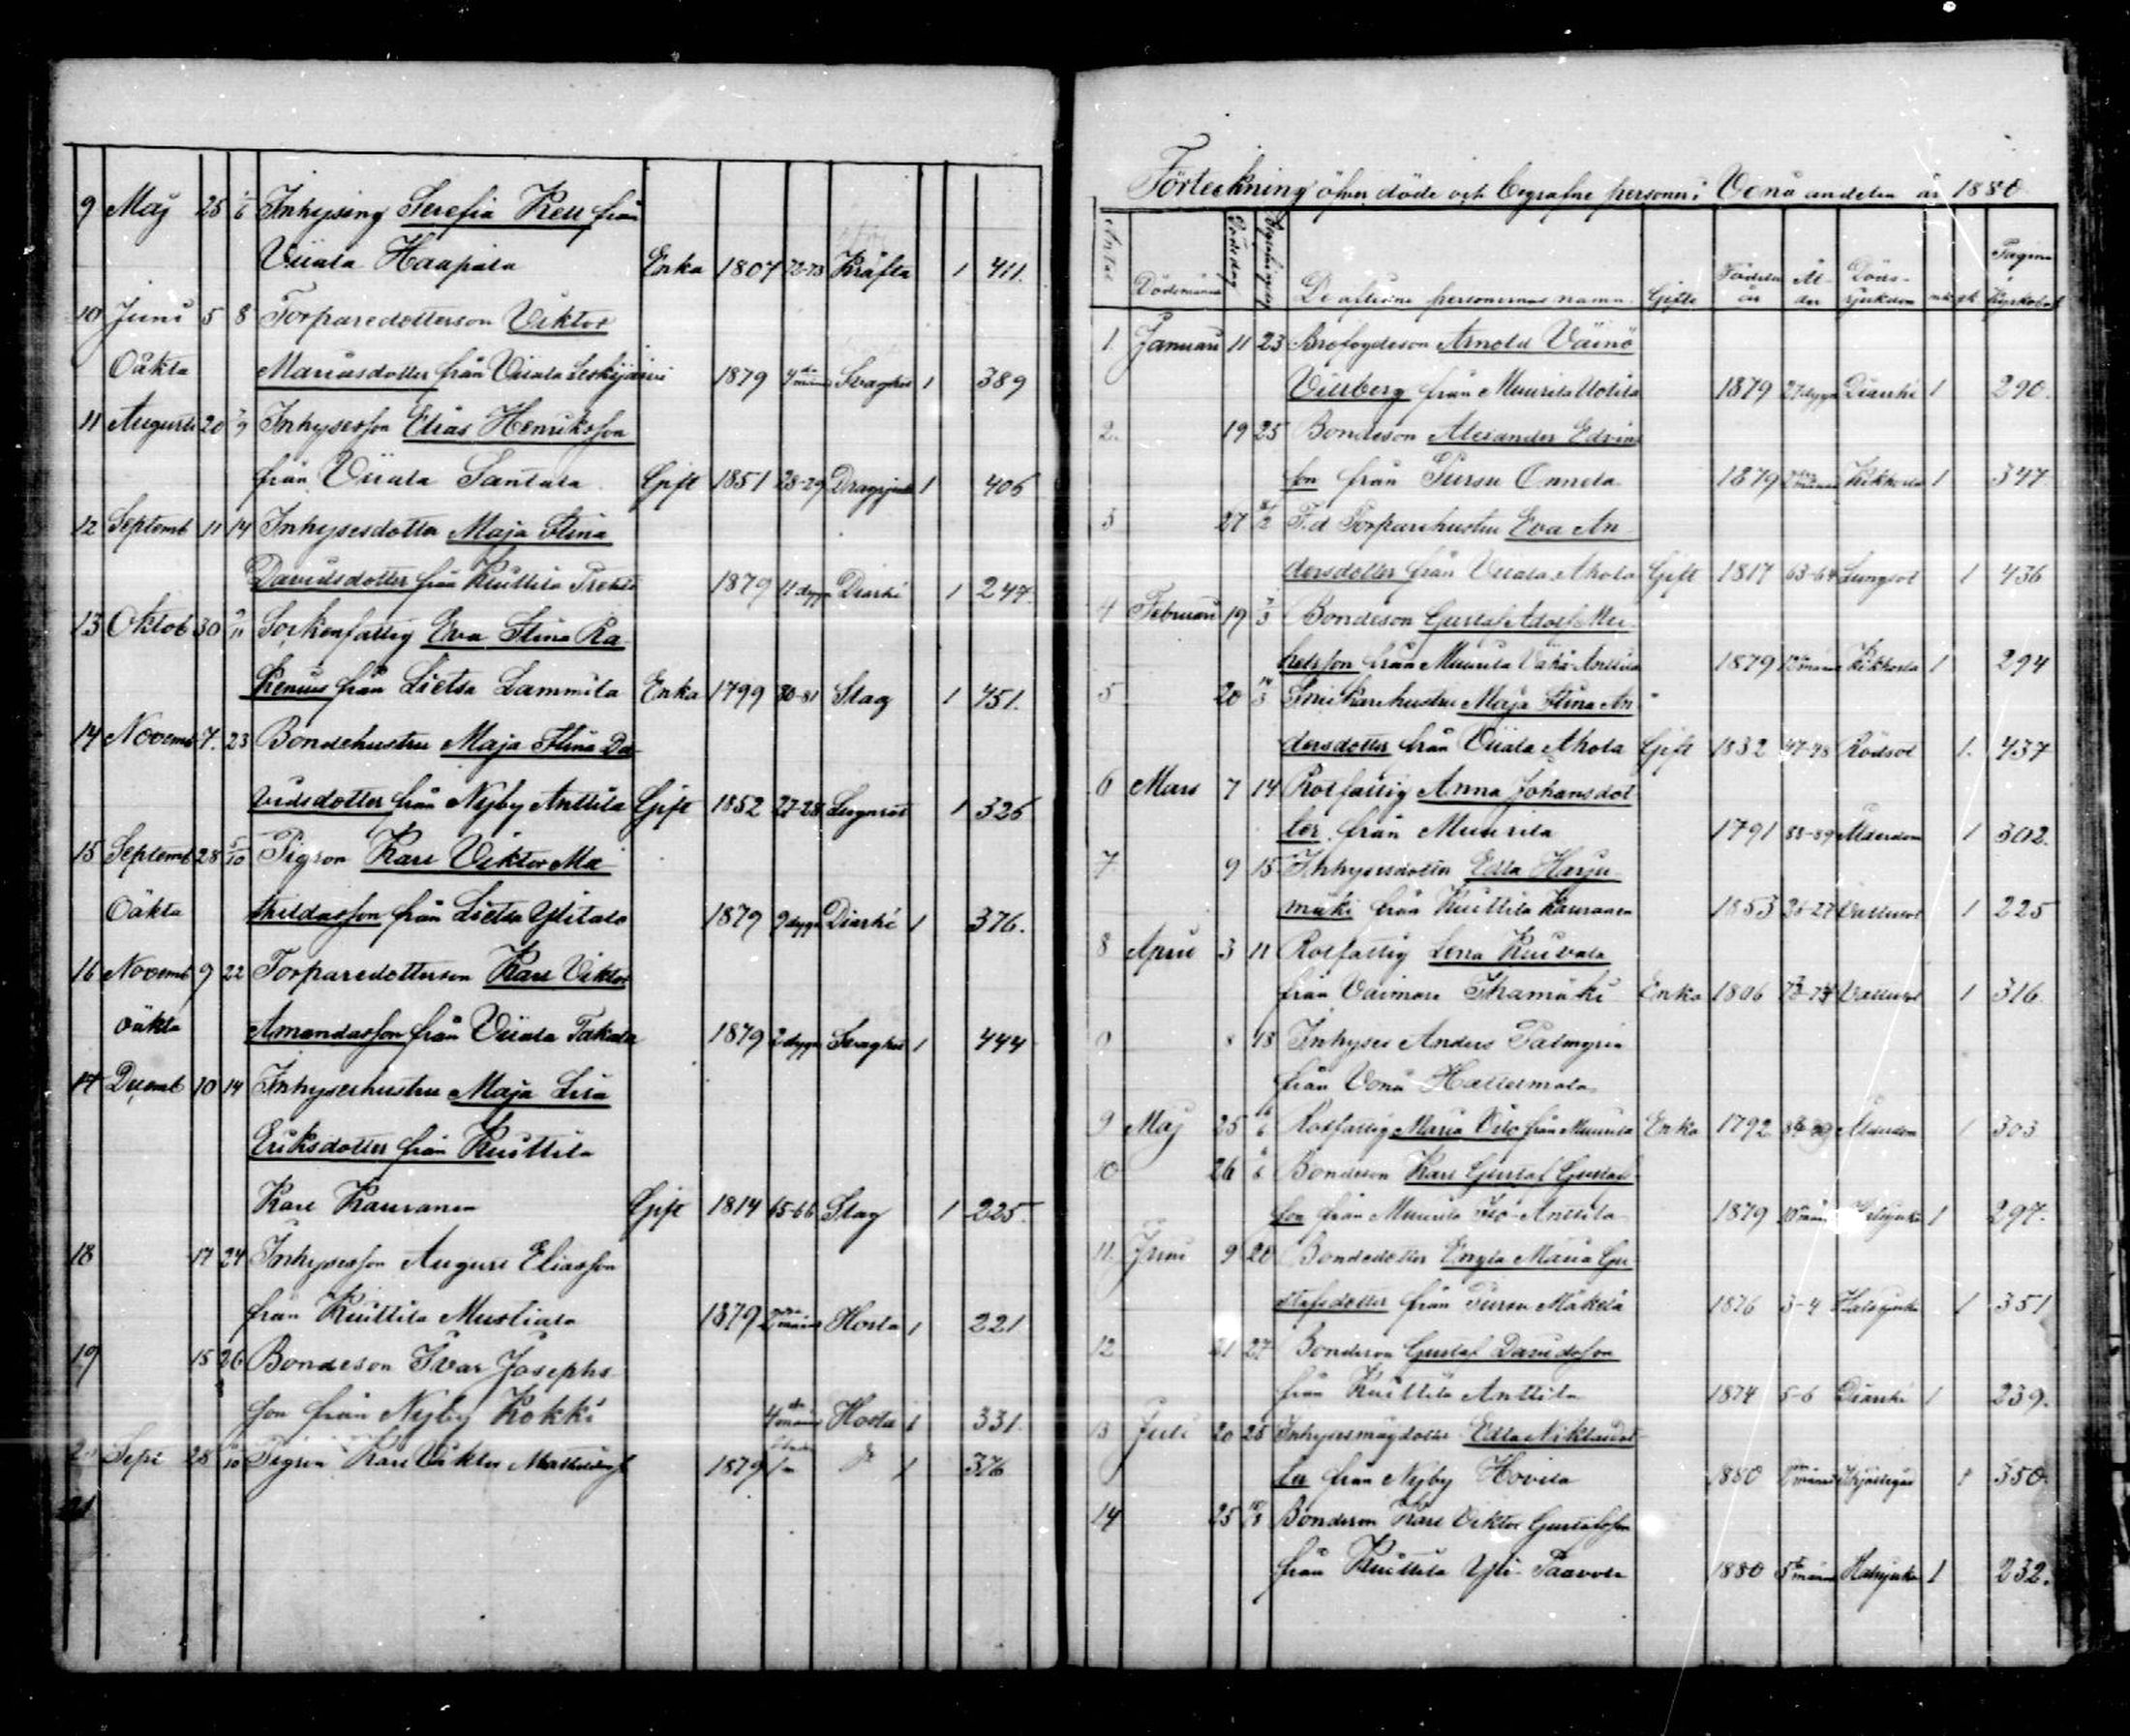 9 Maj 25 1/6 Inhysing Serefia Kell från
Viiala Haapala Enka 1807 72-73 Kräfta 1 411.
10 Juni 5 8 Torparedotterson Viktor
Oäkta Mariasdotter från Viiala 1879 4 mån Svaghet 1 389
11 Augusti 20 7/9 Inhysesson Elias Henriksson
från Viiala Santala Gift 1851 28-29 1 406
12 Septemb 11 14 Inhysesdotter Maja Stina
Davidsdotter från Kuittila 1879 11 dygn Diarhé 1 247.
13 Oktob 30 9/11 Sockenfattig Eva Stina Ra
från Lietsa Lammila Enka 1799 80-81 Slag 1 451.
14 Novemb 7. 23 Bondehustru Maja Stina Da
vidsdotter från Nyby Anttila Gift 1852 27-28 Lungsot 1 326
15 Septemb 28 5/10 Pigson Karl Viktor Ma
Oäkta thildasson från Lietsa Ylitalo 1879 9 dygn Diarhé 1 376.
16 Novemb 9 22 Torparedotterson Karl Viktor
oäkta Amandasson från Viiala Takala 1879 2 dygn Svaghet 1 444
17 Decemb 10 14 Inhyseshustru Maja Lisa
Eriksdotter från Kuittila
Karl Kauranen Gift 1814 65-66 Slag 1 225.
18 17 24 Inhysesson August Eliasson
från Kuittila Mustiala 1879 2 månad Hosta 1 221
19 15 26 Bondeson Ivar Josephs
son från Nyby Kokki 4 månad Hosta 1 331.
20 Sept 28 5/10 Pigson Karl Viktor 1879 1 376
21
Förteckning öfver döde och begrafne personer i Venä andelen år 1880
Antal Dödsmånad Dödsdag Begrafningsdag De aflidne personernas namn. Gifte Födelse år Ål-der Döds-sjukdom mk qk Pagina i kyrkobok
1. Januari 11 23 Brofogdeson Arnold Väinö
Villberg från Muurila Uotila 1879 27 dygn Diarrhé 1 290.
2. 19 25 Bondeson Alexander Edvins
son från Pursu Onnela 1879 2 månad Kikhosta 1 347.
3 27 F.d Torparehustru Eva An
dersdotter från Viiala Ahola Gift 1817 63-64 Lungsot 1 436
4 Februari 19 7/3 Bondeson Gustaf Adolf Mi
helsson från Muurila Vähä Anttila 1879 månad Kikhosta 1 294
5 20 14/3 Snickarehustru Maja Stina An
dersdotter från Viiala Ahola Gift 1832 47-48 Rödsot 1. 437
6 Mars 7 14 Rotfattig Anna Johansdot
ter från Muurila 1791 88-89 Ålderdom 1 302.
7. 9 15 Inhysesdotter Edla Harju
mäki från Kuittila Kauranen 1853 26-27 Vattusot 1 225
8 April 3 11 Rotfattig Lena Kuivala
från Vaimare Ihamäki Enka 1806 73-74 Vattusot 1 316.
0 8 18 Inhyses Anders Palmgrén
från Venä Hattermala
9 Maj 25 6/6 Rotfattig Maria Vilo från Muurila Enka 1792 Ålderdom 1 303
10 26 6/6 Bondeson Karl Gustaf Gustafs
son från Muurila Iso-Anttila 1879 10 mån Halssjuka 1 297.
11. Juni 9 20 Bondedotter Engla Maria Gu
stafsdotter från Pursu Mäkelä 1876 3-4 Halssjuka 1 351
12 21 27 Bondeson Gustaf Davidsson
från Kuittila Anttila 1874 5-6 Diarrhé 1 239.
13 Juli 20 25 Inhysesmågdotter Edla Niklasdot
ter från Nyby Hovila 1880 månad 1 350.
14 25 Bondeson Karl Viktor Gustafsson
från Kuittila Yli-Paavola 1880 5 månad Halssjuka 1 232.